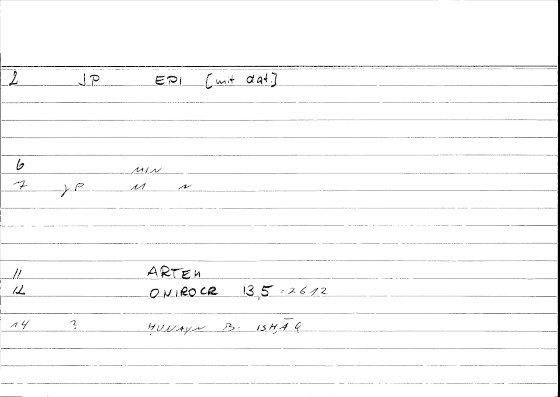 2 JP EPI [mit dat.]
6 MIN
7 JP M N
11 ARTEM
12 ONIROCR 13,5 = 2612
14 ? ḤUNAYN B. ISḤĀQ